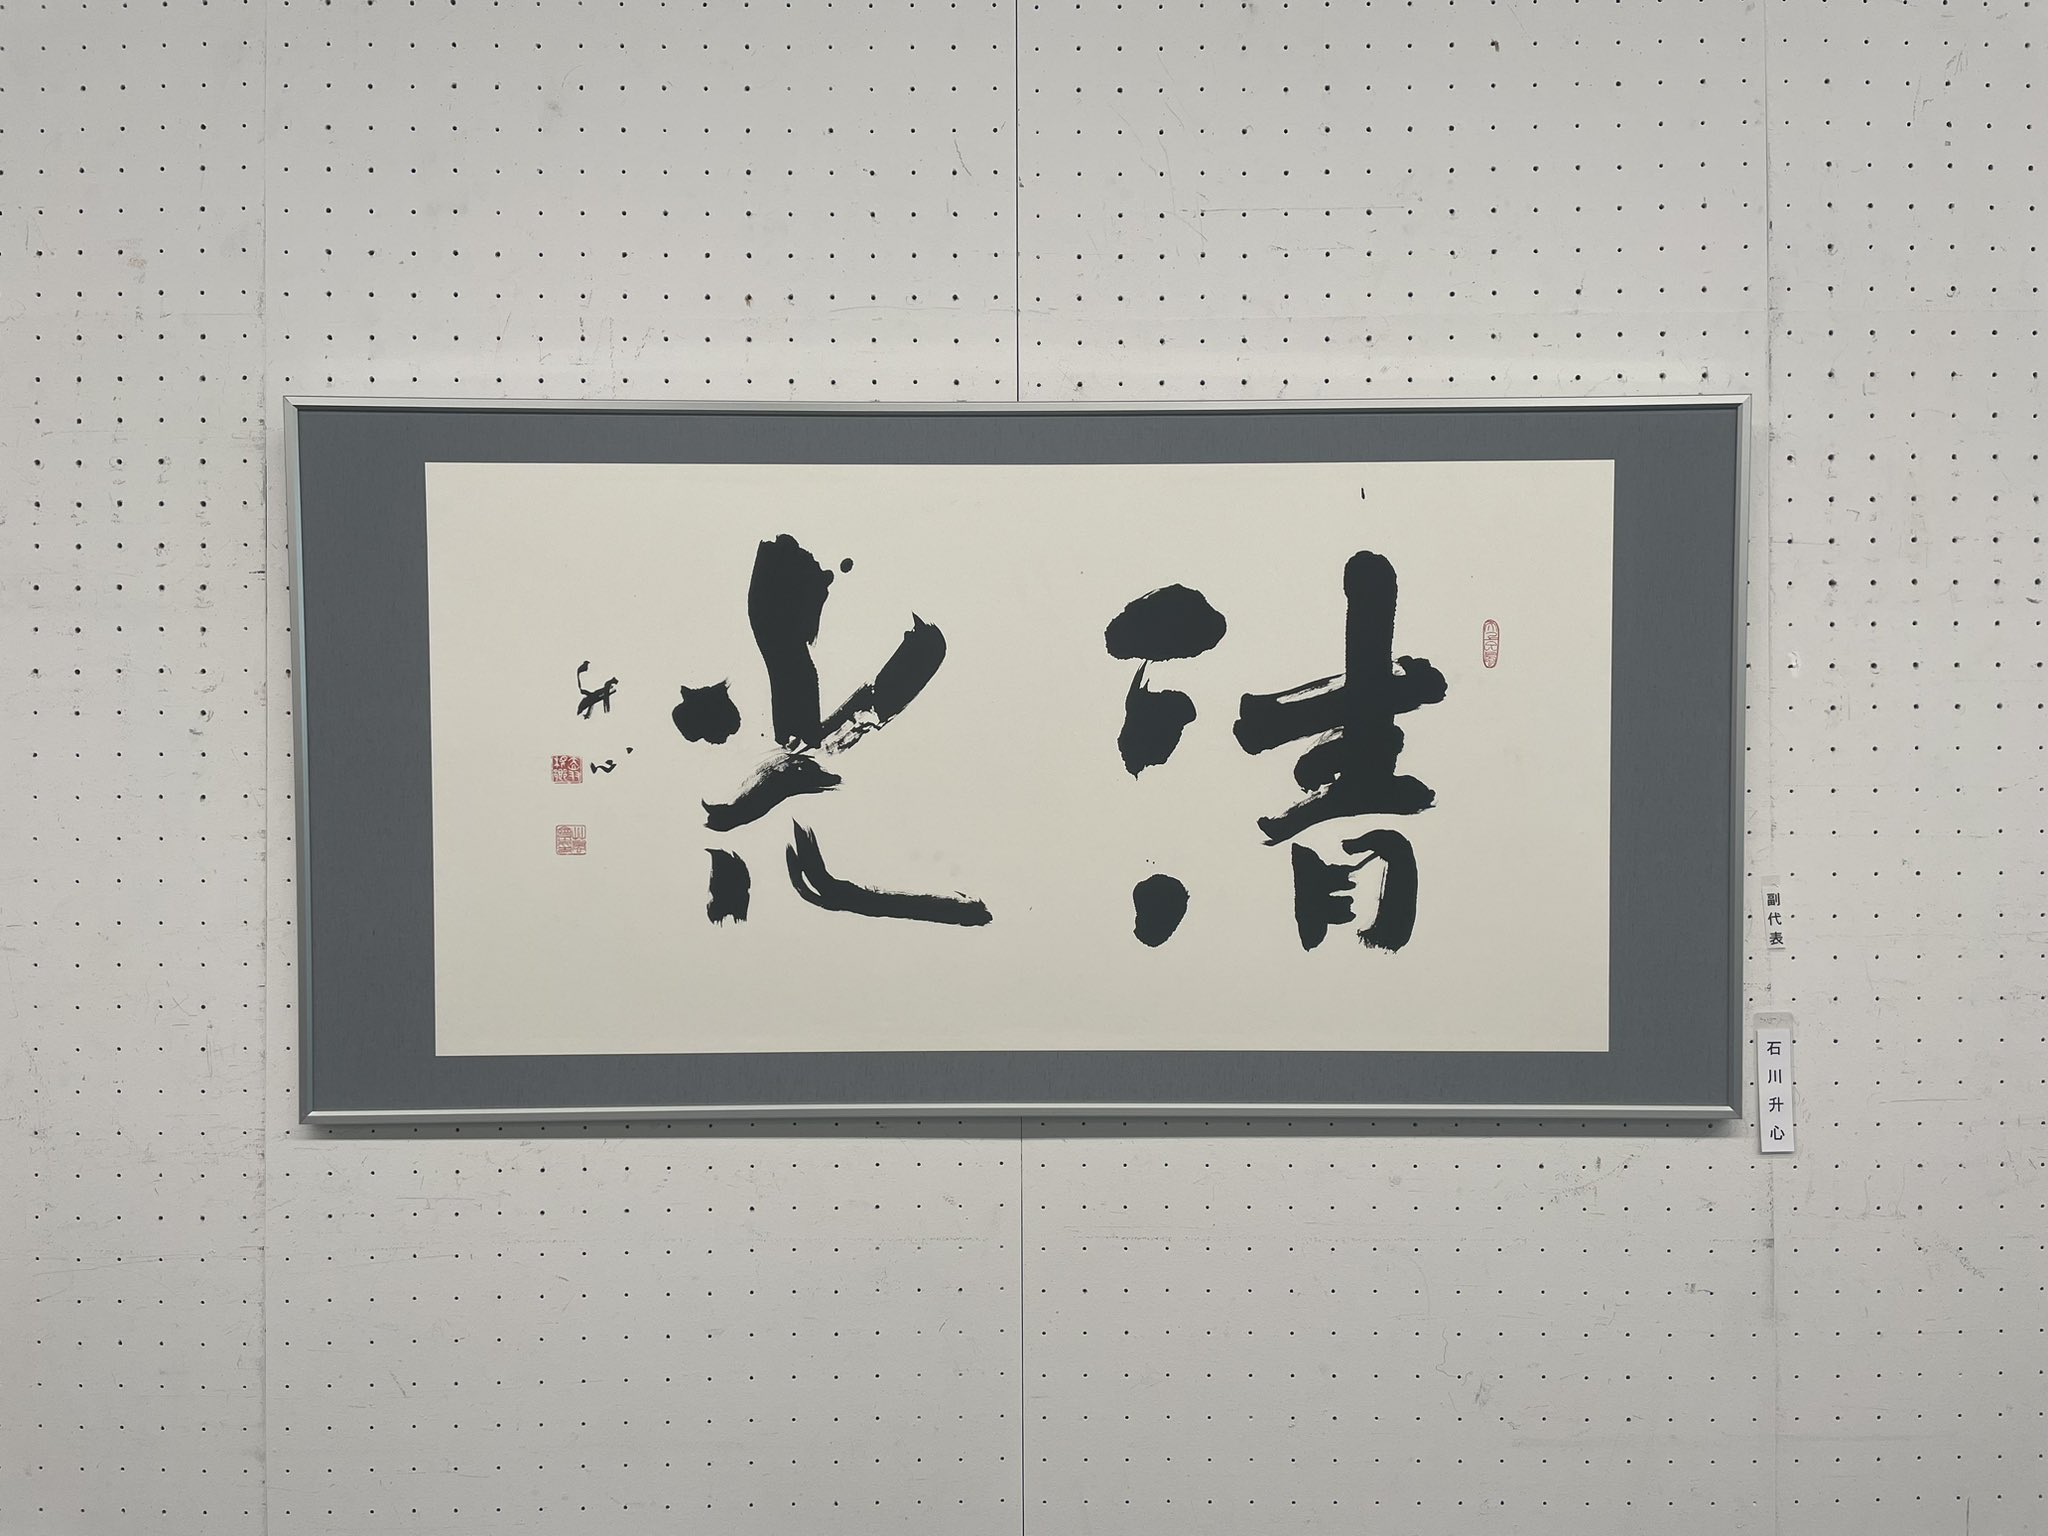 清光
升心
副代表
石川升心